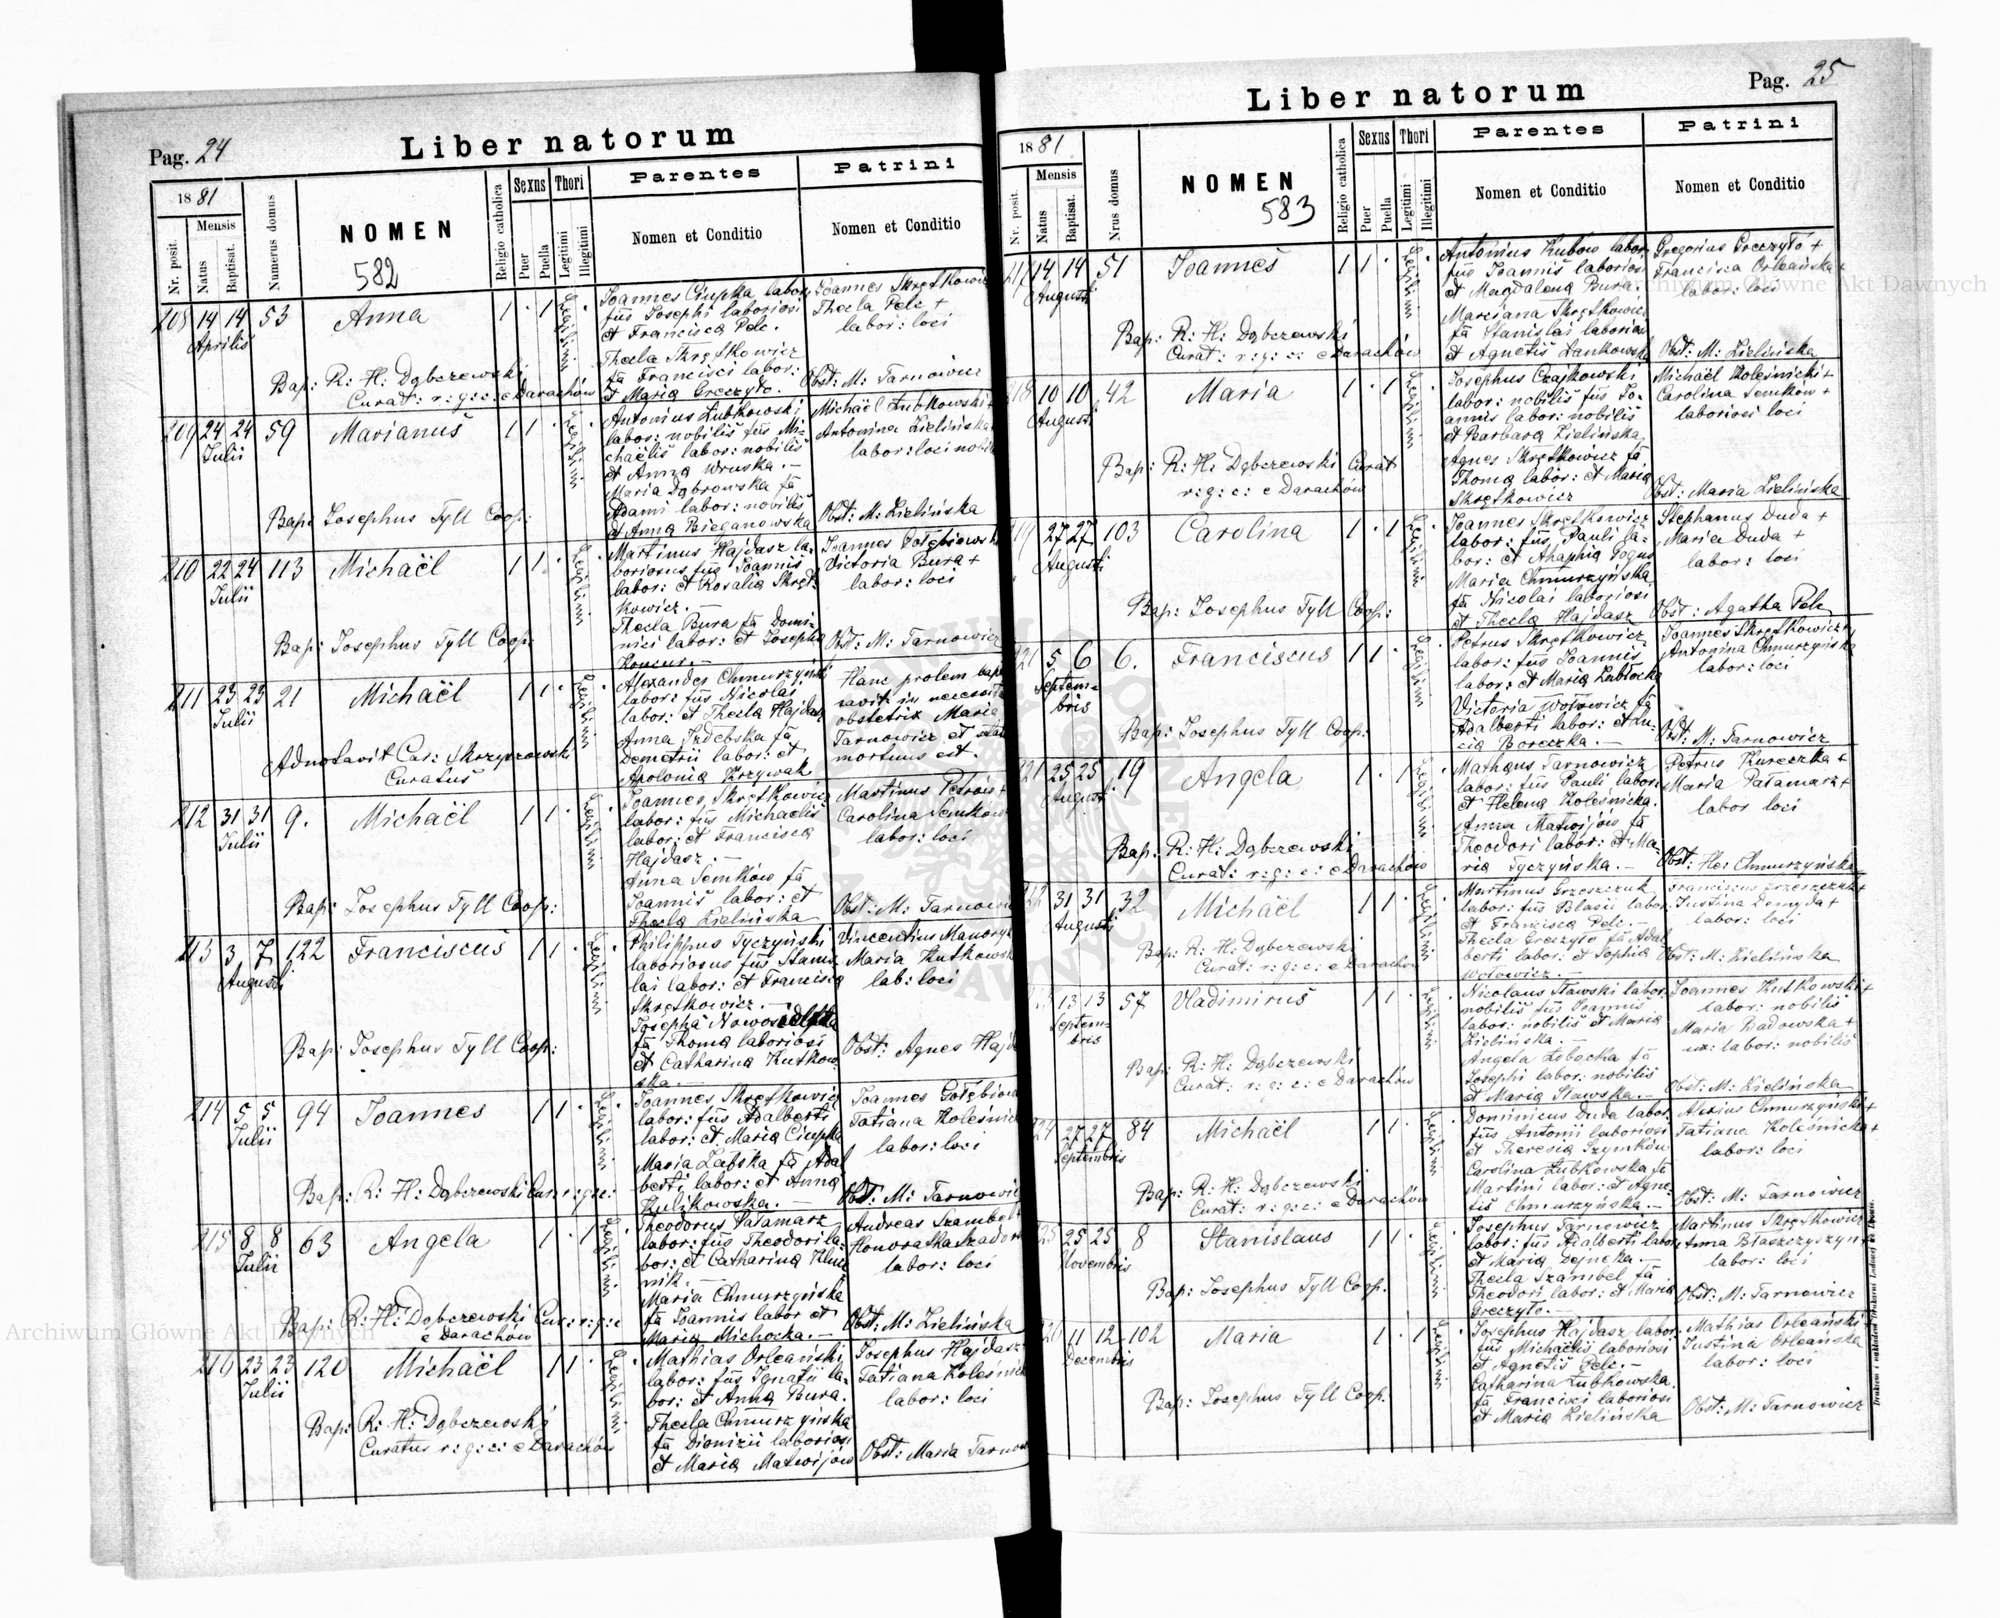 Pag. 24
Liber natorum
1881
Mensis
Nr. posit.
Natus
Baptisat.
Numerus domus
NOMEN
582
Religio catholica
Sexus
Puer
Puella
Thori
Legitimi
Illegitimi
Parentes
Nomen et Conditio
Patrini
Nomen et Conditio
208 14 14 53 Anna 1 · 1
Aprilis
Legitimi
Joannes Ciupka labor:
fűs Josephi laboriosi
et Francisca Pelc.
Thecla Skrętkowicz
fa Francisci labor:
et Maria Greczyło.
Joannes Skrętkowicz
Thecla Pelc +
labor: loci
Obst: M: Tarnowicz
Bap: R: H: Dąbczewski
Curat: r: g: c: e Darachów
209 24 24 59 Marianus 1 1 ·
Julii
Legitimi
Antonius Łubkowski
labor: nobilis fűs Mi-
chaëlis labor: nobilis
et Anna Wruska. —
Maria Dąbrowska fa
Adami labor: nobilis
et Anna Bieganowska
Michaël Łubkowski +
Antonina Zielińska
labor: loci nobil
Obst: M: Zielińska
Bap: Josephus Tyll Coop:
210 22 24 113 Michaël 1 1 ·
Julii
Legitimi
Martinus Hajdasz la-
boriosus fűs Joannis
labor: et Rosalia Skręt-
kowicz. —
Thecla Bura fa Domi-
nici labor: et Josepha
Koncur. —
Joannes Gołębiowski
Victoria Bura +
labor: loci
Obst: M: Tarnowicz
Bap: Josephus Tyll Coop:
211 23 23 21 Michaël 1 1 ·
Julii
Legitimi
Alexander Chmurzyński
labor: fűs Nicolai
labor: et Thecla Hajdasz
Anna Izdebska fa
Demetrii labor: et
Apolonia Krzywak
Hanc prolem bapti
savit in necessita
obstetrix Maria
Tarnowicz et
mortuus est.
Adnotavit Car: Skrzyszewski
Curatus
212 31 31 9. Michaël 1 1 ·
Julii
Legitimi
Joannes Skrętkowicz
labor: fűs Michaëlis
labor: et Francisca
Hajdasz. —
Anna Semków fa
Joannis labor: et
Thecla Zielińska
Martinus Petrów +
Carolina Semków
labor: loci
Obst: M: Tarnowicz
Bap: Josephus Tyll Coop:
213 3 7 122 Franciscus 1 1 ·
Augusti
Legitimi
Philippus Tyczyński
laboriosus fűs Stanis-
lai labor: et Francisca
Skrętkowicz. —
Josepha Nowosielska
fa Thoma laboriosi
et Catharina Kutkow-
ska. —
Vincentius Manory
Maria Kutkowsk
lab: loci
Obst: Agnes Hajd
Bap: Josephus Tyll Coop:
214 5 5 94 Joannes 1 1 ·
Julii
Legitimi
Joannes Skrętkowicz
labor: fűs Adalberti
labor: et Maria Ciupka
Maria Zabska fa Adal
berti labor: et Anna
Kulikowska. —
Joannes Gołębiow
Tatiana Koleśnick
labor: loci
Obst: M: Tarnowicz
Bap: R: H: Dąbczewski Cur: r: g: c:
215 8 8 63 Angela 1 · 1
Julii
Legitimi
Theodorus Pałamarz
labor: fűs Theodori la-
bor: et Catharina Klim
nik. —
Maria Chmurzyńska
fa Joannis labor et
Maria Michocka. —
Andreas Szambel
Honorata Szador
labor: loci
Obst: M: Zielińska
Bap: R: H: Dąbczewski Cur: r: g: c
e Darachów
216 23 23 120 Michaël 1 1 ·
Julii
Legitimi
Mathias Orleański
labor: fűs Ignatii la-
bor: et Anna Bura.
Thecla Chmurzyńska
fa Dionizii laboriosi
et Maria Matwijów
Josephus Hajdasz
Tatiana Koleśnick
labor: loci
Obst: Maria Tarnow
Bap: R: H: Dąbczewski
Curatus r: g: c: e Darachów
Pag. 25
Liber natorum
1881
Mensis
Nr. posit.
Natus
Baptisat.
Nrus domus
NOMEN
583
Religio catholica
Sexus
Puer
Puella
Thori
Legitimi
Illegitimi
Parentes
Nomen et Conditio
Patrini
Nomen et Conditio
217 14 14 51 Joannes 1 1 ·
Augusti
Legitimi
Antonius Kubów labor:
fűs Joannis laboriosi
et Magdalena Bura.
Marciana Skrętkowicz
fa Stanislai laboriosi
et Agnetis Jankowska
Gregorius Greczyło +
Francisca Orleańska +
labor: loci
Obst: M: Zielińska
Bap: R: H: Dąbczewski
Curat: r: g: c: e Darachów
218 10 10 42 Maria 1 · 1
Augusti
Legitimi
Josephus Czajkowski
labor: nobilis fűs Jo-
annis labor: nobilis
et Barbara Zielińska
Agnes Skrętkowicz fa
Thoma labor: et Maria
Skrętkowicz
Michaël Koleśnicki +
Carolina Semków +
laboriosi loci
Obst: Maria Zielińska
Bap: R: H: Dąbczewski Curat
r: g: c: e Darachów
219 27 27 103 Carolina 1 · 1
Augusti
Legitimi
Joannes Skrętkowicz
labor: fűs Pauli la-
bor: et Ahaphia Gogus
Maria Chmurzyńska
fa Nicolai laboriosi
et Thecla Hajdasz
Stephanus Duda +
Maria Duda +
labor: loci
Obst: Agatha Pelc
Bap: Josephus Tyll Coop:
5 6 6. Franciscus 1 1 ·
Septem-
bris
Legitimi
Petrus Skrętkowicz
labor: fűs Joannis
labor: et Maria Zabłocka
Victoria Wołowicz fa
Adalberti labor: et Lu-
cia Boreczka. —
Joannes Skrętkowicz +
Antonina Chmurzyńska
labor: loci
Obst: M: Tarnowicz
Bap: Josephus Tyll Coop:
221 25 25 19 Angela 1 · 1
Augusti
Legitimi
Mathaus Tarnowicz
labor: fűs Pauli labor:
et Helena Koleśnicka.
Anna Matwijów fa
Theodori labor: et Ma-
ria Tyczyńska. —
Petrus Kureczka +
Maria Pałamarz +
labor loci
Obst: He: Chmurzyńska
Bap: R: H: Dąbczewski
Curat: r: g: c: e Darachów
222 31 31 32 Michaël 1 1 ·
Augusti
Legitimi
Martinus Grzeszczuk
labor: fűs Blasii labor:
et Francisca Pelc. —
Thecla Greczyło fa Adal
berti labor: et Sophia
Wołowicz. —
Franciscus Grzeszczuk +
Justina Demyda +
labor: loci
Obst: M: Zielińska
Bap: R: H: Dąbczewski
Curat: r: g: c: e Darachów
13 13 57 Vladimirus 1 1 ·
Septem-
bris
Legitimi
Nicolaus Stawski labor:
nobilis fűs Joannis
labor: nobilis et Maria
Zielińska. —
Angela Łobocka fa
Josephi labor: nobilis
et Maria Stawska. —
Joannes Kutkowski +
labor: nobilis
Maria Dadowska +
ux: labor: nobilis
Obst: M: Zielińska
Bap: R: H: Dąbczewski
Curat: r: g: c: e Darachów
224 27 27 84 Michaël 1 1 ·
Septembris
Legitimi
Dominicus Duda labor:
fűs Antonii laboriosi
et Theresia Szymków
Carolina Łubkowska fa
Martini labor: et Agne-
tis Chmurzyńska. —
Alexius Chmurzyński +
Tatiana Koleśnicka +
labor: loci
Obst: M: Tarnowicz
Bap: R: H: Dąbczewski
Curat: r: g: c: e Darachów
225 25 25 8 Stanislaus 1 1 ·
Novembris
Legitimi
Josephus Tarnowicz
labor: fűs Adalberti labor:
et Maria Dejneka. —
Thecla Szambel fa
Theodori labor: et Maria
Greczyło. —
Martinus Skrętkowicz
Anna Błaszczyszyn +
labor: loci
Obst: M: Tarnowicz
Bap: Josephus Tyll Coop:
226 11 12 102 Maria 1 · 1
Decembris
Legitimi
Josephus Hajdasz labor:
fűs Michaëlis laboriosi
et Agnetis Pelc. —
Catharina Łubkowska
fa Francisci laboriosi
et Maria Zielińska
Mathias Orleański +
Justina Orleańska
labor: loci
Obst: M: Tarnowicz
Bap: Josephus Tyll Coop:
Drukiem i nakładem Drukarni Ludowej we Lwowie.
Archiwum Główne Akt Dawnych
Archiwum Główne Akt Dawnych